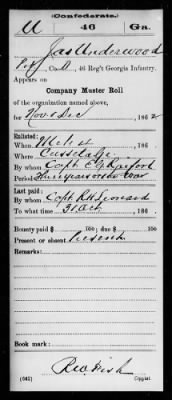 (Confederate.)
U 46 Ga.
Jas Underwood
Pvt, Co. D, 46 Reg't Georgia Infantry.
Appears on
Company Muster Roll
of the organization named above,
for Nov & Dec, 186 2
Enlisted:
When 186 .
Where Cusseta Ga.
By whom Capt
Period three years or the war
Last paid:
By whom Capt. R H Leonard
To what time 31 Oct, 186 .
Bounty paid $ 100; due $ 100
Present or absent Present
Remarks:
Book mark:
(642) Copyist.